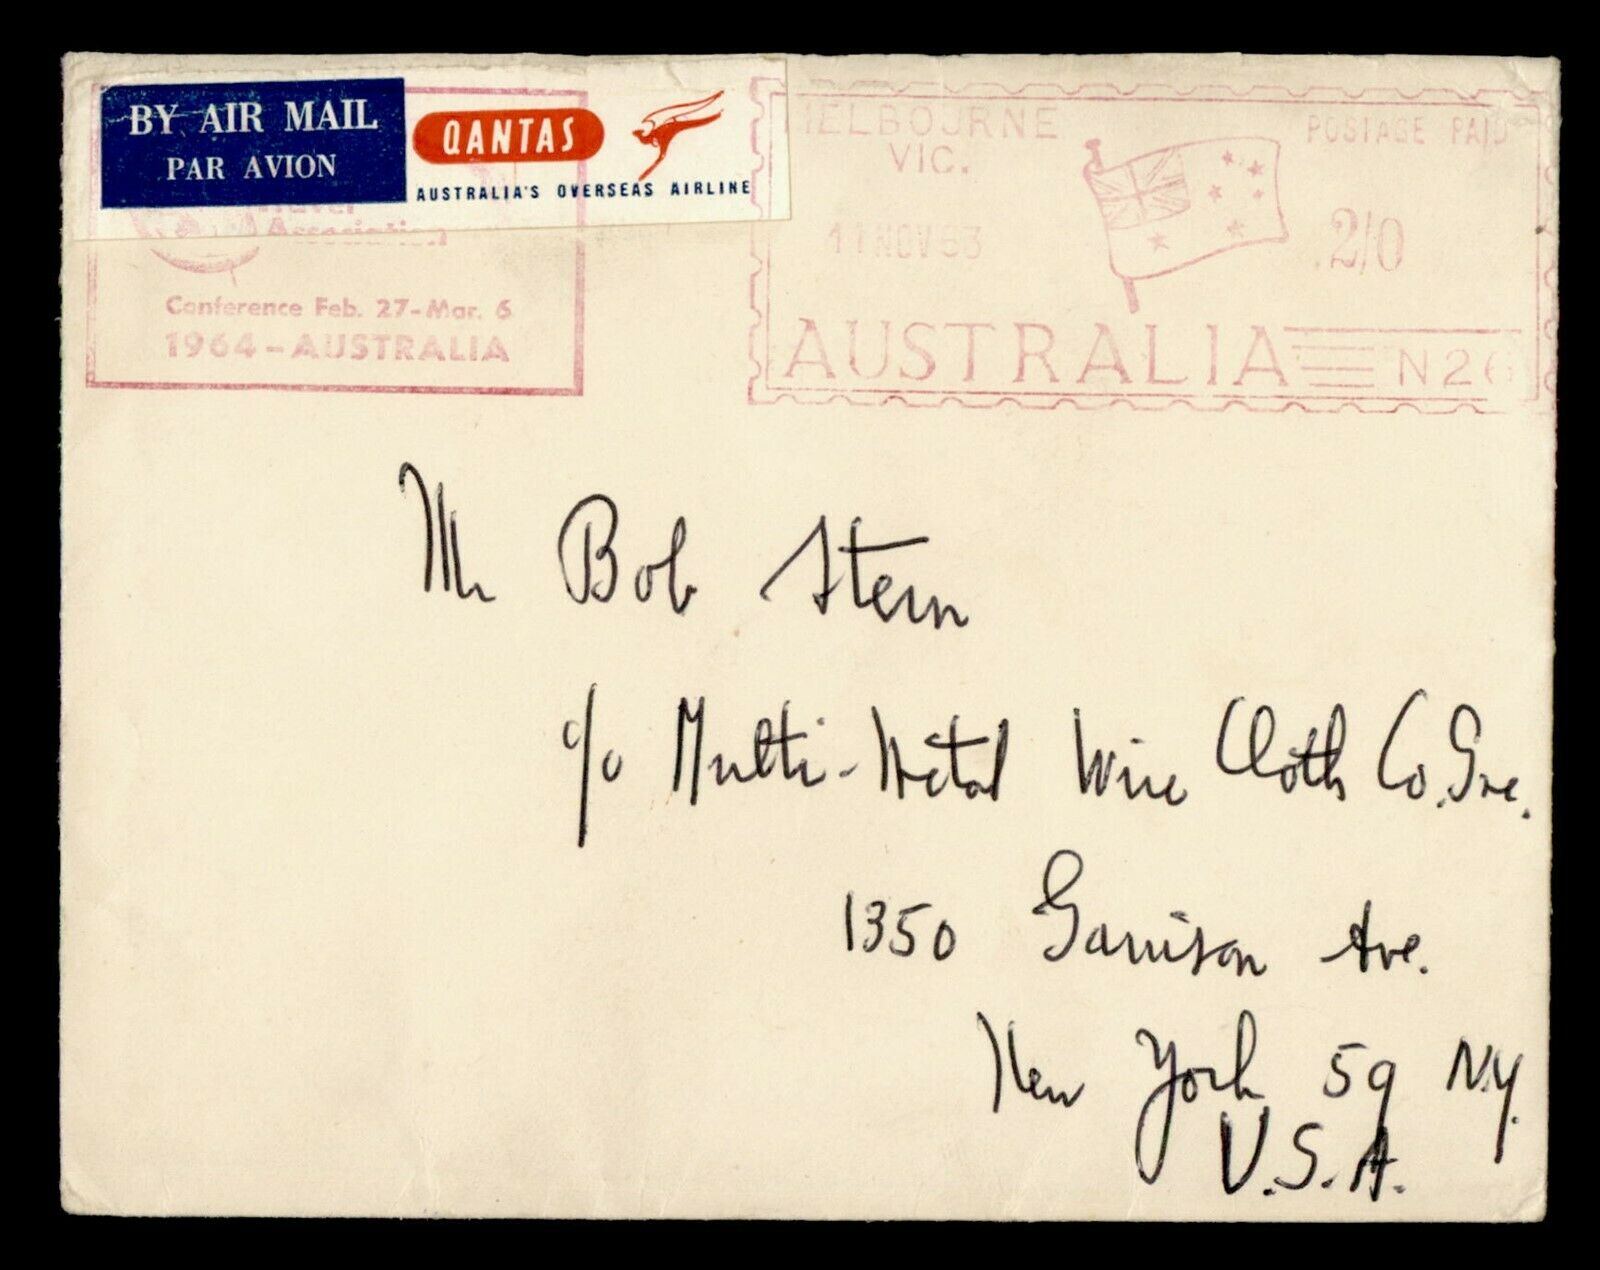 BY AIR MAIL
PAR AVION
QANTAS
AUSTRALIA'S OVERSEAS AIRLINE
Association
Conference Feb. 27-Mar. 6
1964-AUSTRALIA
MELBOURNE
VIC.
POSTAGE PAID
11 NOV 63
2/0
AUSTRALIA N26
Mr Bob Stern
c/o Multi-Metal Wire Cloth Co. Inc.
1350 Garrison Ave.
New York 59 N.Y.
U.S.A.